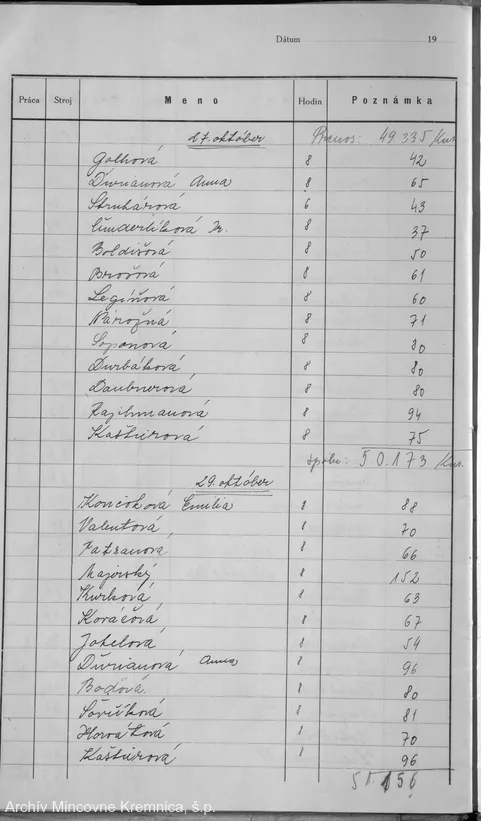 Dátum 19
Práca Stroj Meno Hodin Poznámka
27. október Prenos: 49.335/Kus
Golhová 8 42
Ďurianová Anna 8 65
Struhárová 6 43
8 37
Boldišová 8 50
Brošová 8 61
Legíňová 8 60
Nárožná 8 71
Soponová 8 80
Durbáková 8 80
Daubnerová 8 80
Rajhmanová 8 94
Kaštúrová 8 75
Spolu: 50.173/Kus.
29. október
Končoková Emilia 8 88
Valentová 8 70
Fatranová 8 66
Majerský 8 152
Kurková 8 63
Kováčová 8 67
Jotelová 8 54
Ďurianová Anna 8 96
Bodová 8 80
8 81
Horváková 8 70
Kaštúrová 8 96
51.156
Archív Mincovne Kremnica, š.p.